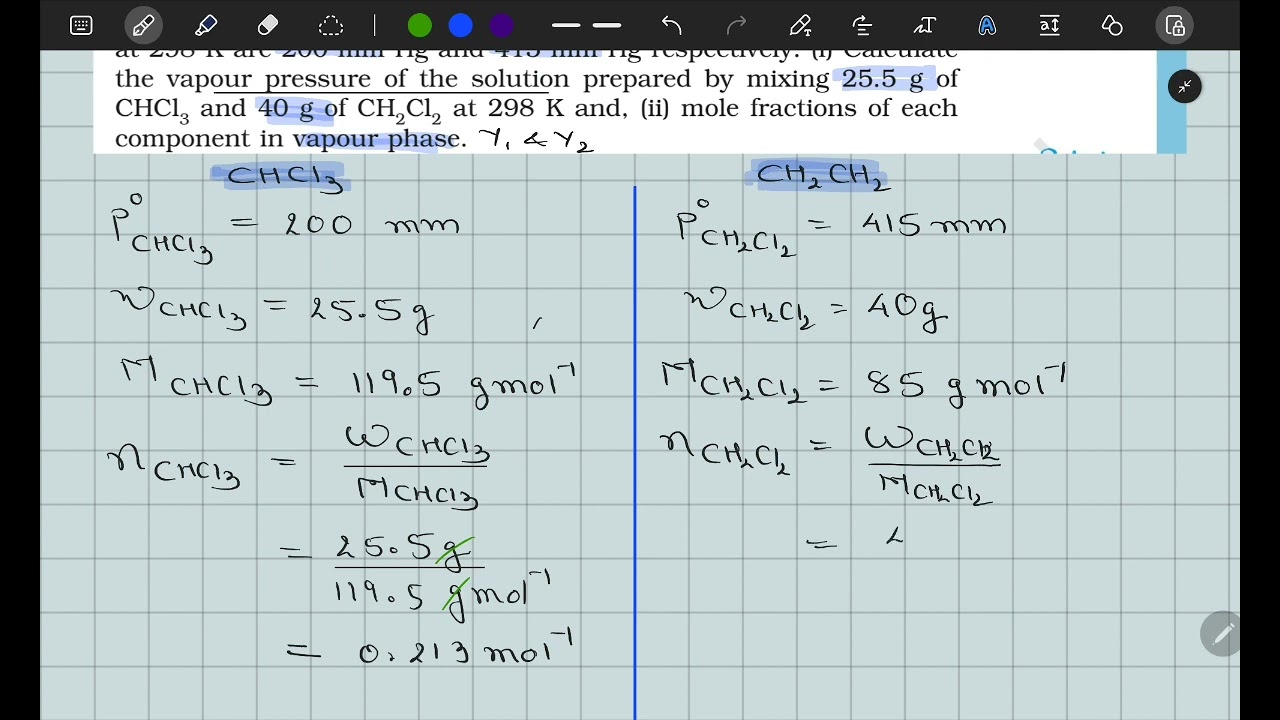 at 298 K are 200 mm Hg and 415 mm Hg respectively. (i) Calculate
the vapour pressure of the solution prepared by mixing 25.5 g of
CHCl₃ and 40 g of CH₂Cl₂ at 298 K and, (ii) mole fractions of each
component in vapour phase. Y₁ & Y₂
CHCl₃
P°CHCl₃ = 200 mm
wCHCl₃ = 25.5g ,
MCHCl₃ = 119.5 gmol⁻¹
nCHCl₃ = WCHCl₃ / MCHCl₃
= 25.5g / 119.5 gmol⁻¹
= 0.213 mol⁻¹
CH₂CH₂
P°CH₂Cl₂ = 415 mm
wCH₂Cl₂ = 40g
MCH₂Cl₂ = 85 g mol⁻¹
nCH₂Cl₂ = WCH₂Cl₂ / MCH₂Cl₂
= 4